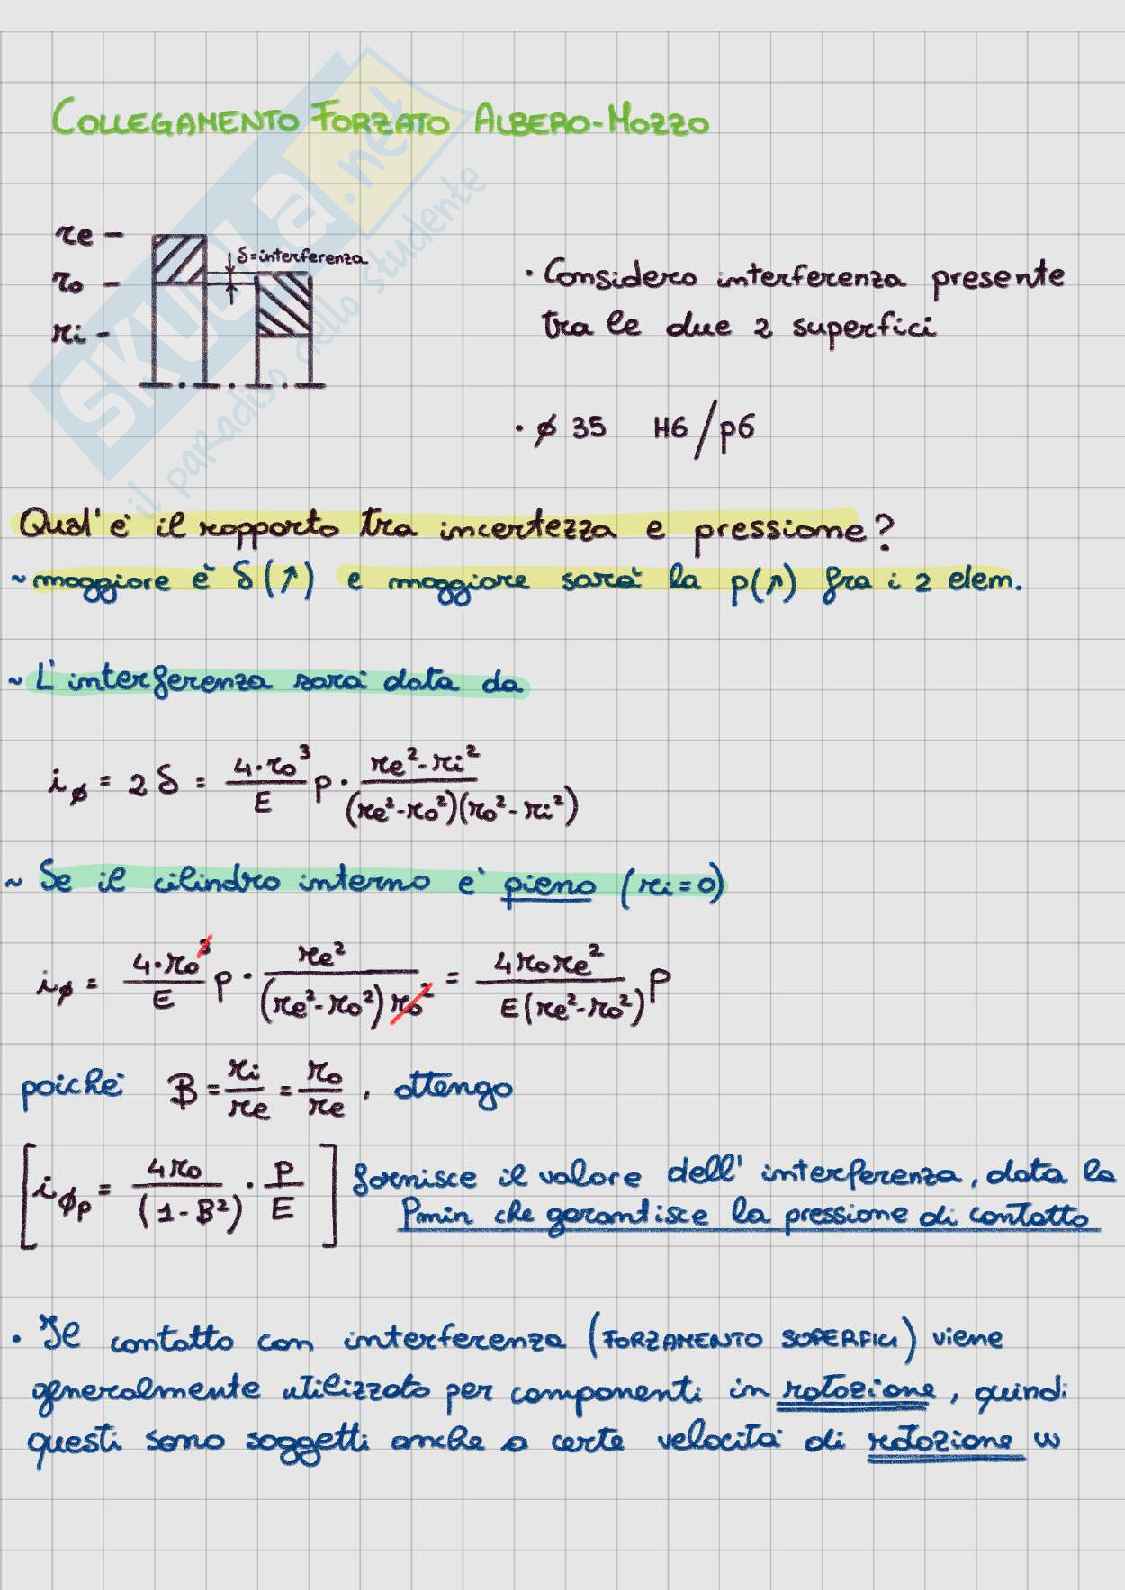 COLLEGAMENTO FORZATO ALBERO-MOZZO
SKUOLA.net
il paradiso dello studente
re -
ro -
ri -
δ=interferenza
· Considero interferenza presente
tra le due 2 superfici
· ø 35 H6/p6
Qual'è il rapporto tra incertezza e pressione?
~ maggiore è δ(↑) e maggiore sarà la p(↑) fra i 2 elem.
~ L'interferenza sarà data da
iø = 2δ = 4·ro³/E p · re²-ri²/(re²-ro²)(ro²-ri²)
~ Se il cilindro interno è pieno (ri=0)
iø = 4·ro³/E p · re²/(re²-ro²)ro² = 4rore²/E(re²-ro²) p
poiché B = ri/re = ro/re , ottengo
[iøp = 4ro/(1-B²) · P/E] fornisce il valore dell'interferenza, data la
Pmin che garantisce la pressione di contatto
· Il contatto con interferenza (FORZAMENTO SUPERFICI) viene
generalmente utilizzato per componenti in rotazione, quindi
questi sono soggetti anche a certe velocità di rotazione w